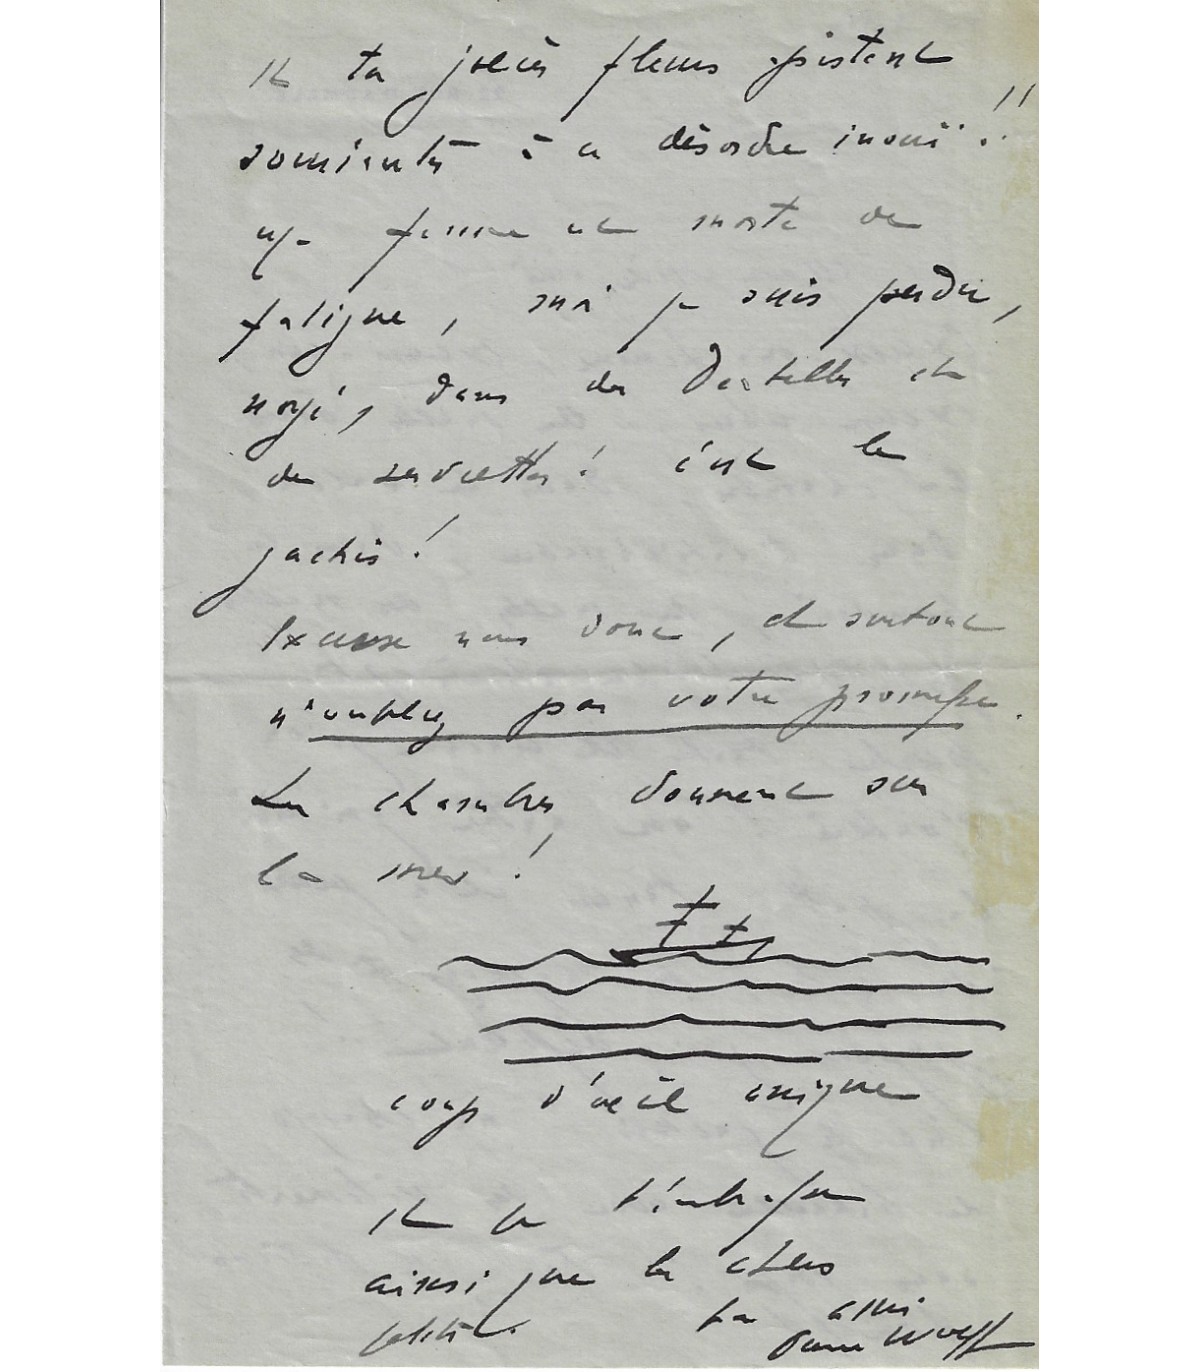 Et tes jolies fleurs assistent
souriantes à ce désordre inouï !!
Ma femme est morte de
fatigue, moi je suis perdu,
noyé, dans des dentelles et
des serviettes ! c'est le
gachis !
Excuse nous donc, et surtout
n'oubliez pas votre promesse.
Les chambres donnent sur
la mer !
coup d'œil unique
Et je t'embrasse
ainsi que les chers
petits.
ton ami
Pierre Wolff